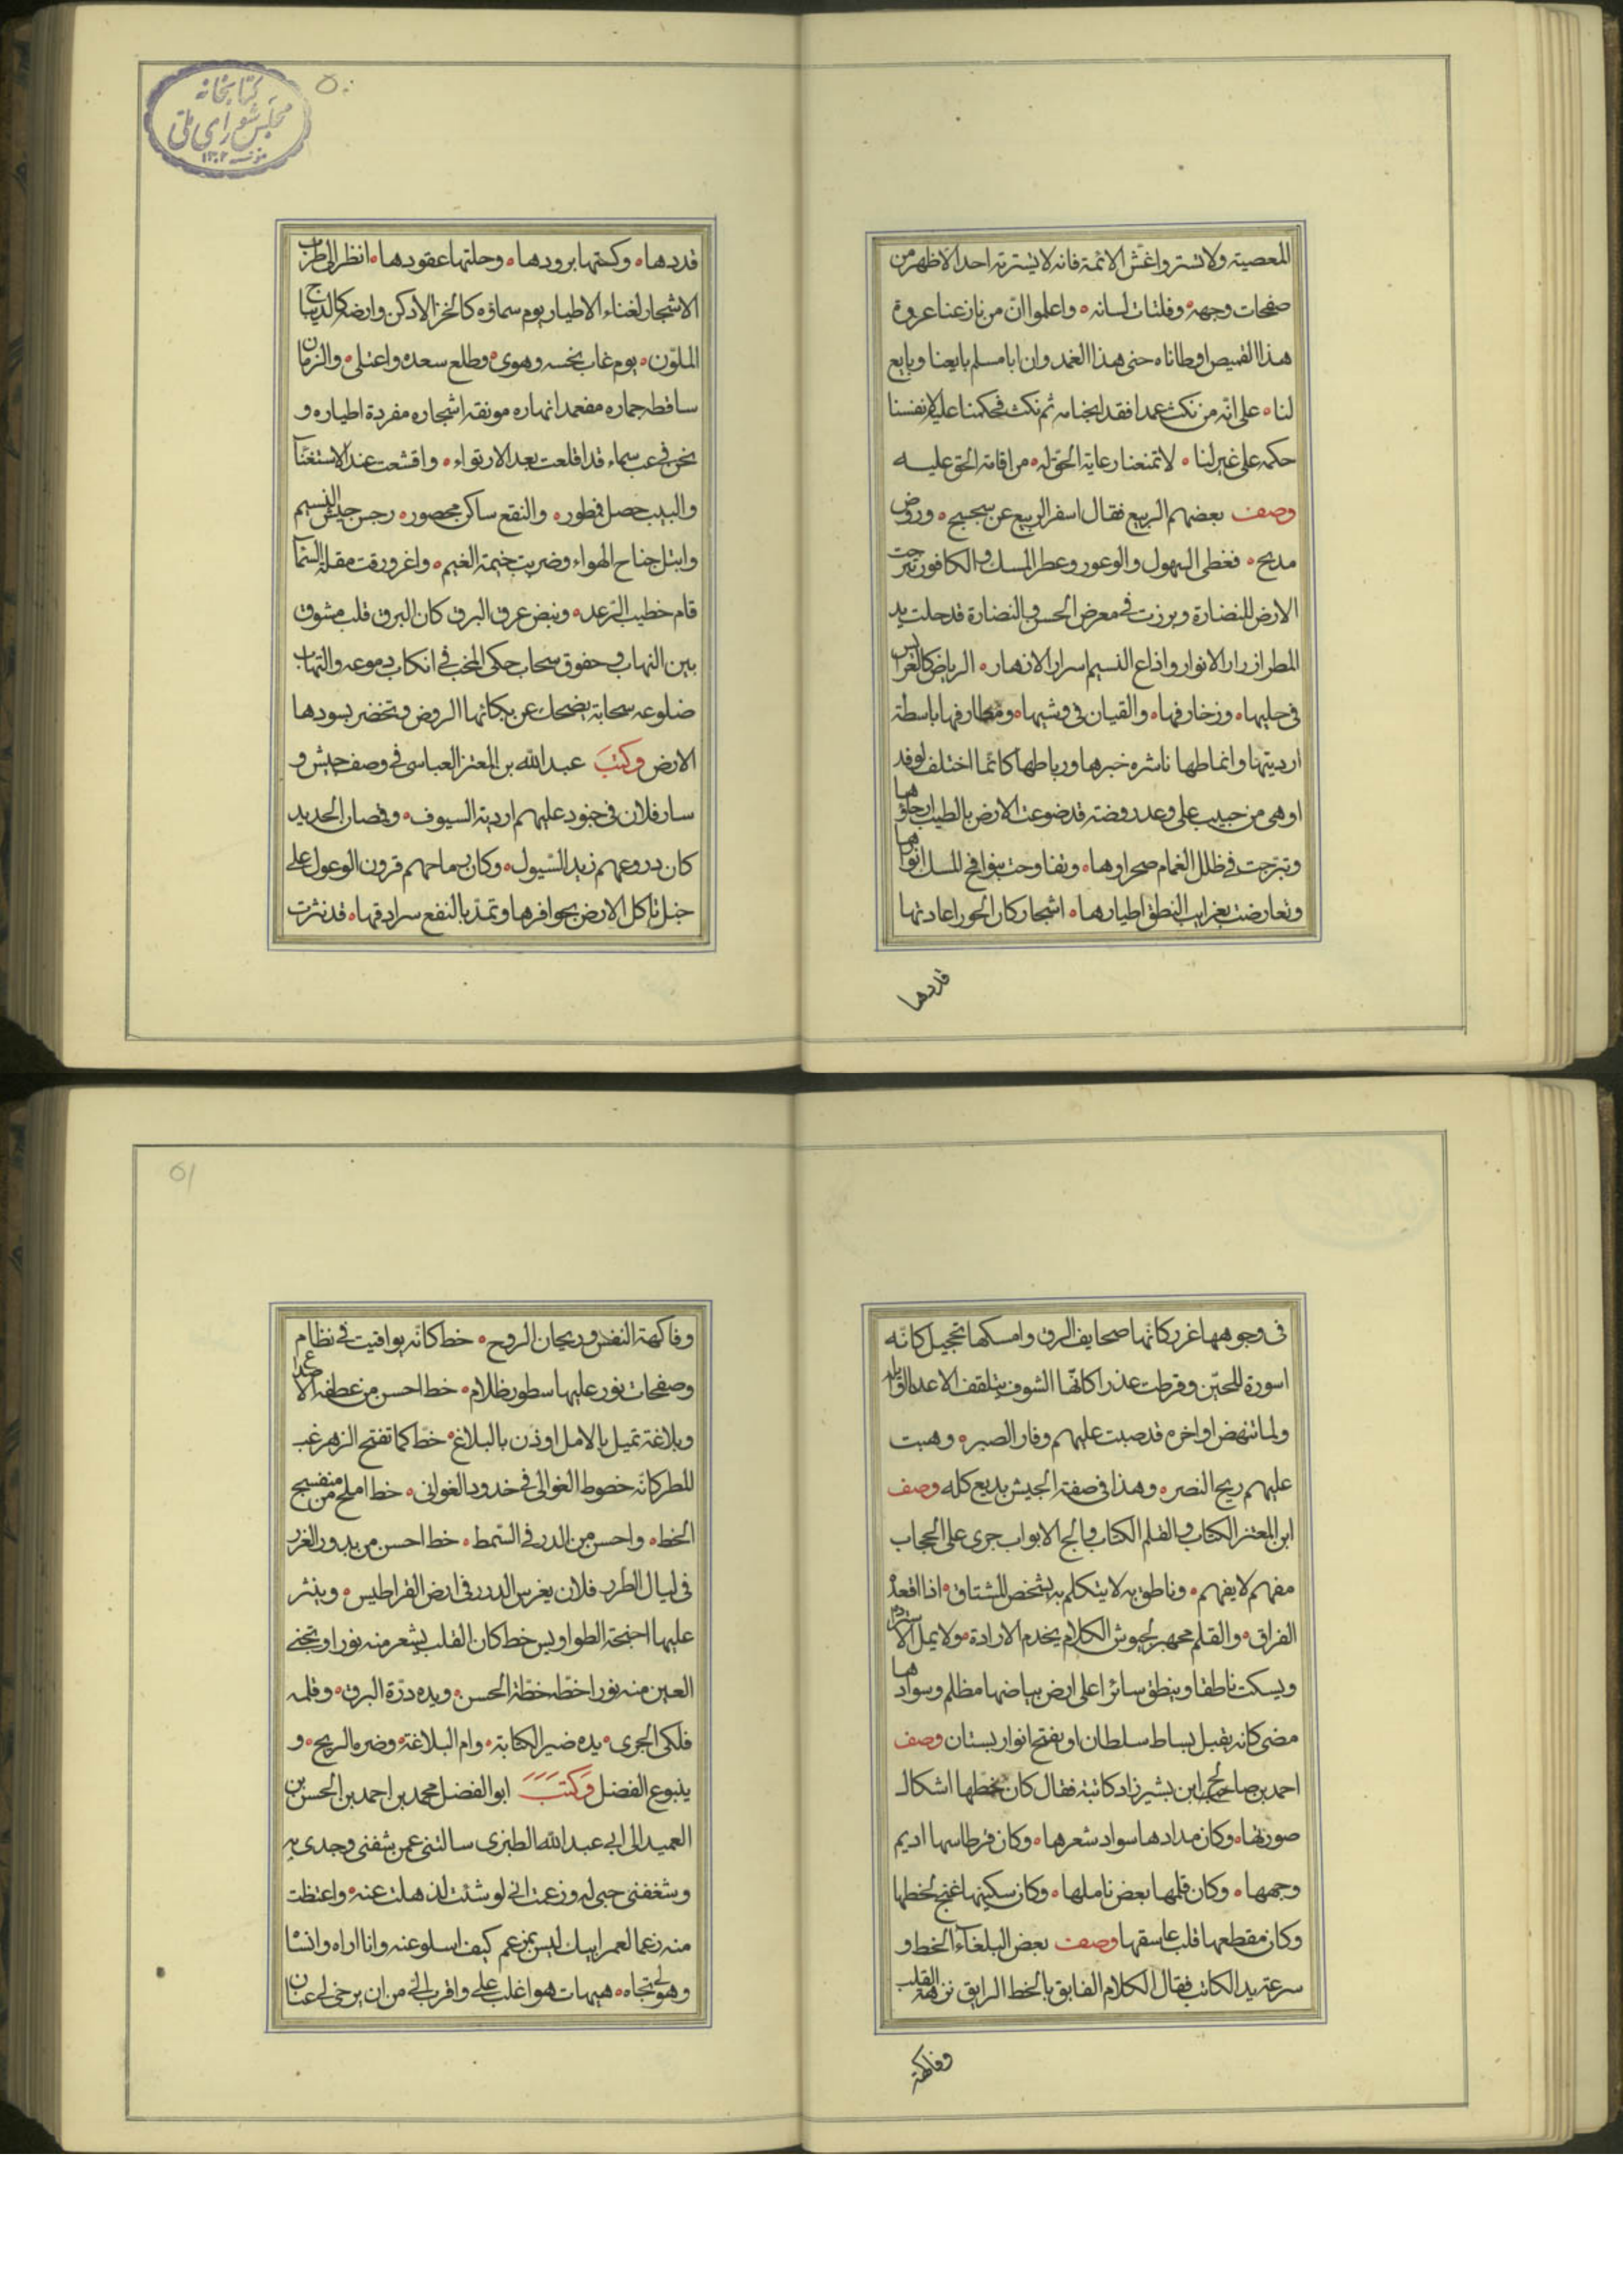 للمعصية ولا تستروا غش الائمة فانه لا يستر به احد الا ظهر من
صفحات وجهه وفلتات لسانه واعلموا ان من نازعنا عروة
هذا القميص اوطاناه حتى هذا الغمد وان ابا مسلم بايعنا وبايع
لنا على انه من نكث عمدا فقد ابحنا دمه ثم نكث فحكمنا عليه لانفسنا
حكمه على غيرنا لا تمنعنا رعاية الحق له من اقامة الحق عليه
وصف بعضهم الربيع فقال اسفر الربيع عن سجسج وروض
مدبح فغطى السهول والوعور وعطر المسك والكافور تبرجت
الارض للنضارة وبرزت في معرض الحسن والنضارة قد حلت يد
المطر ازرار الانوار واذاع النسيم اسرار الازهار الرياض كالعرايس
في حليها وزخارفها والقيان في وشيها ومطارفها باسطة
ارديتها وانماطها ناشره خبرها ورباطها كانما اختلف لوفد
او هى من حبيب على وعد روضة قد ضوعت الارض بالطيب ارجاؤها
وتبرجت في ظلل الغمام صحراوها وتفاوحت بنوافح المسك انوارها
وتعارضت بغرايب النطق اطيارها اشجار كان الحور اعادتها
قددها
كتابخانه
مجلس شوراى ملى
مؤسسه ١٣٠٢
٥٠
قددها وكستها برودها وحلتها عقودها انظر الى طرب
الاشجار لغناء الاطيار يوم سماؤه كالخز الادكن وارضه كالديباج
الملون يوم غاب نحسه وهوى وطلع سعده واعتلى والزمان
ساقطه جماره مفعمه انهاره مونقه اشجاره مفردة اطياره و
نحن في غب سماء قد اقلعت بعد الارتواء واقشعت عند الاستغناء
والبيب خضل ممطور والنقع ساكن محصور رجس جيش النسيم
وابتل جناح الهواء وضربت خيمة الغيم واغرورقت مقلة السماء
قام خطيب الرعد ونبض عرق البرق كان البرق قلب مشوق
بين التهاب وخفوق سحاب حكى المحب في انكاب دموعه والتهاب
ضلوعه سحابة يضحك عن بكائها الروض وتخضر بسودها
الارض وكتب عبدالله بن المعتز العباسى في وصف جيش و
سار فلان في جنود عليهم اردية السيوف وقمصان الحديد
كان دروعهم زبد السيول وكان رماحهم قرون الوعول على
خيل تاكل الارض بحوافرها وتمد بالنقع سرادقها قد نثرت
في وجوهها غرر كانها صحايف الرق وامسكها تحجيل كانه
اسورة اللجين وقرطت عذرا كانها الشنوف يتلقف الاعداء اوايله
ولما تنهض اواخره قد صبت عليهم وقار الصبر وهبت
عليهم ريح النصر وهذا في صفة الجيش بديع كله وصف
ابن المعتز الكتاب والقلم الكتاب والج الابواب جرى على الحجاب
مفهم لا يفهم وناطق به لا يتكلم به يشخص المشتاق اذا اقعده
الفراق والقلم مجهز لجيوش الكلام يخدم الارادة ولا يمل الاستزادة
ويسكت ناطقا وينطق سائرا على ارض بياضها مظلم وسوادها
مضى كانه يقبل بساط سلطان او يفتح انوار بستان وصف
احمد بن صالح ابن بشيرزاد كاتبة فقال كان خطها اشكال
صورتها وكان مدادها سواد شعرها وكان قرطاسها اديم
وجهها وكان قلمها بعض ناملها وكان سكينها غنج لحظها
وكان مقطعها قلب عاشقها وصف بعض البلغاء الخط و
سرعة يد الكاتب فقال الكلام الفايق بالخط الرايق نزهة القلب
وفاكهة
٥١
وفاكهة النفس وريحان الروح خط كانه يواقيت في نظام
وصفحات نور عليها سطور ظلام خط احسن من عطفة الاصداغ
وبلاغة تميل بالامل اوذن بالبلاغ خط كما تفتح الزهر غب
المطر كانه خصوط الغوالى في خدود الغوانى خط املح من بنفسج
الخط واحسن من الدر في السمط خط احسن من بدور الغرر
في ليال الطرر فلان يغرس الدرر في ارض القراطيس وينثر
عليها اجنحة الطواويس خط كان القلب يشعر منه نورا وتجنى
العين منه نورا خط خطة الحسن ويده درة البرق وقلمه
فلكى الجرى يده ضير الكتابة وام البلاغة وضره الريح و
ينبوع الفضل وكتب ابو الفضل محمد بن احمد بن الحسن بن
العميد الى ابى عبد الله الطبرى سالتنى عمن شفنى وجدى به
وشغفنى حبى له وزعمت انى لو شئت لذهلت عنه واعتظت
منه زعما لعمر ابيك ليس بمزعم كيف اسلو عنه وانا اراه وانساه
وهو لى تجاه هيهات هو اغلب على واقرب الى من ان يرخى لى عنان